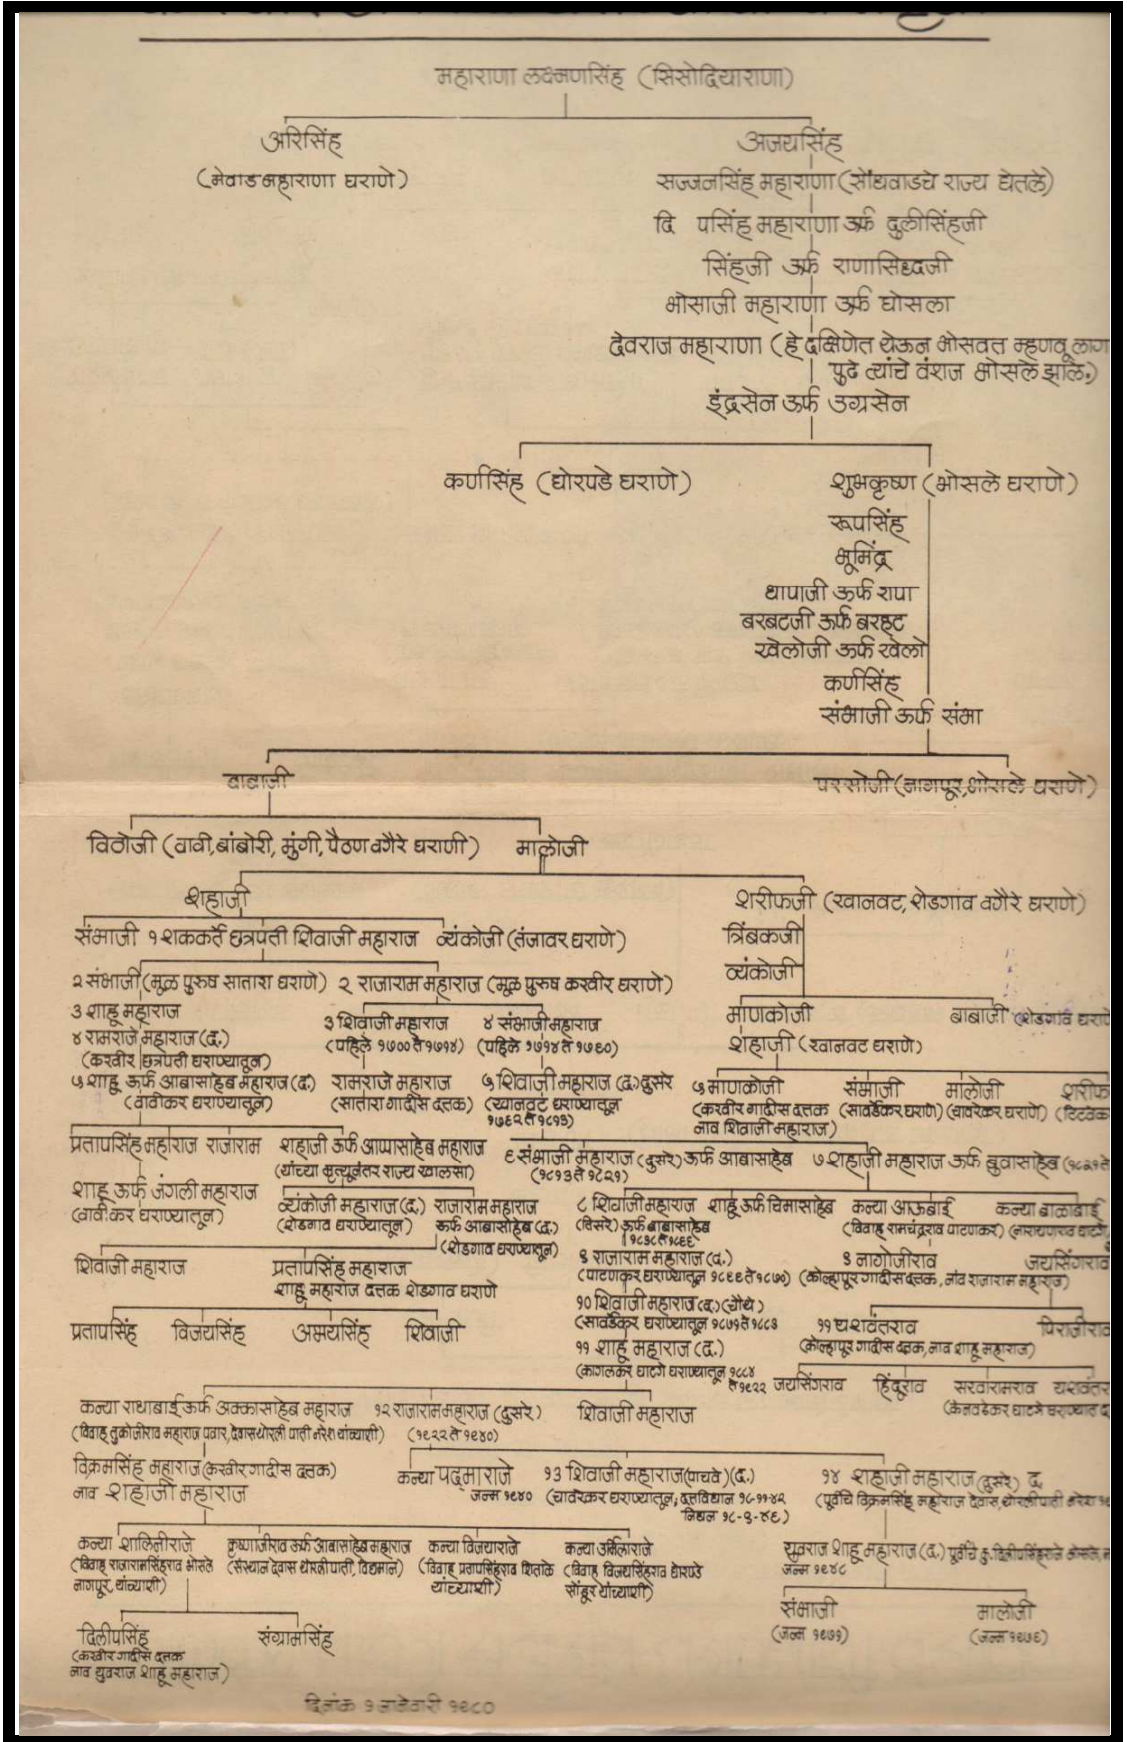 महाराणा लक्ष्मणसिंह (सिसोदियाराणा)
अरिसिंह
अजयसिंह
(मेवाड महाराणा घराणे)
सज्जनसिंह महाराणा (सोंधवाडचे राज्य घेतले)
दि पसिंह महाराणा उर्फ दुलीसिंहजी
सिंहजी उर्फ राणासिध्दजी
भोसाजी महाराणा उर्फ घोसला
देवराज महाराणा (हे दक्षिणेत येऊन भोसवत म्हणवू लाग
पुढे त्यांचे वंशज भोसले झाले.)
इंद्रसेन ऊर्फ उग्रसेन
कर्णसिंह (घोरपडे घराणे)
शुभकृष्ण (भोसले घराणे)
रूपसिंह
भूमिंद्र
धापाजी ऊर्फ रापा
बरबटजी ऊर्फ बरहट
खेलोजी ऊर्फ खेलो
कर्णसिंह
संभाजी ऊर्फ संभा
बाबाजी
परसोजी (नागपूर, भोसले घराणे)
विठोजी (वावी, बांबोरी, मुंगी, पैठण वगैरे घराणी)
मालोजी
शहाजी
शरीफजी (खानवट, शेडगांव वगैरे घराणे)
संभाजी १ शककर्ते छत्रपती शिवाजी महाराज व्यंकोजी (तंजावर घराणे)
त्रिंबकजी
व्यंकोजी
२ संभाजी (मूळ पुरुष सातारा घराणे) २ राजाराम महाराज (मूळ पुरुष करवीर घराणे)
३ शाहू महाराज
३ शिवाजी महाराज
(पहिले १७०० ते १७१४)
४ संभाजी महाराज
(पहिले १७१४ ते १७६०)
माणकोजी
बाबाजी (शेडगांव घराणे
४ रामराजे महाराज (द.)
(करवीर छत्रपती घराण्यातून)
शहाजी (खानवट घराणे)
५ शाहू ऊर्फ आबासाहेब महाराज (द.)
(वावीकर घराण्यातून)
रामराजे महाराज
(सातारा गादीस दत्तक)
५ शिवाजी महाराज (द.) दुसरे
(खानवट घराण्यातून
१७६२ ते १८१३)
५ माणकोजी
(करवीर गादीस दत्तक
नाव शिवाजी महाराज)
संभाजी
(सावर्डेकर घराणे)
मालोजी
(चावरेकर घराणे)
शरीफ
प्रतापसिंह महाराज राजाराम
शहाजी ऊर्फ आप्पासाहेब महाराज
(यांच्या मृत्यूनंतर राज्य खालसा)
६ संभाजी महाराज (दुसरे) ऊर्फ आबासाहेब
(१८१३ ते १८२१)
७ शहाजी महाराज ऊर्फ बुवासाहेब (१८२१ ते
शाहू ऊर्फ जंगली महाराज
(वावीकर घराण्यातून)
व्यंकोजी महाराज (द.)
(शेडगाव घराण्यातून)
राजाराम महाराज
ऊर्फ आबासाहेब (द.)
(शेडगांव घराण्यातून)
८ शिवाजी महाराज
(तिसरे) ऊर्फ बाबासाहेब
१८३८ ते १८६६
शाहू ऊर्फ चिमासाहेब
कन्या आऊबाई
(विवाह रामचंद्रराव पाटणकर)
कन्या बाळाबाई
(नारायणराव घाटगे
शिवाजी महाराज
प्रतापसिंह महाराज
शाहू महाराज दत्तक शेडगाव घराणे
९ राजाराम महाराज (द.)
(पाटणकर घराण्यातून १८६६ ते १८७०)
९ नागोजीराव
(कोल्हापूर गादीस दत्तक, नांव राजाराम महाराज)
जयसिंगराव
१० शिवाजी महाराज (द.) (चौथे)
(सावर्डेकर घराण्यातून १८७१ ते १८८३
प्रतापसिंह विजयसिंह अभयसिंह शिवाजी
११ यशवंतराव
(कोल्हापूर गादीस दत्तक, नाव शाहू महाराज)
पिराजीराव
११ शाहू महाराज (द.)
(कागलकर घाटगे घराण्यातून १८८४
ते १९२२
जयसिंगराव हिंदूराव सखारामराव यशवंतर
(केनवडेकर घाटगे घराण्यात द
कन्या राधाबाई ऊर्फ अक्कासाहेब महाराज
(विवाह तुकोजीराव महाराज पवार, देवास थोरली पाती नरेश यांच्याशी)
१२ राजाराम महाराज (दुसरे)
(१९२२ ते १९४०)
शिवाजी महाराज
विक्रमसिंह महाराज (करवीर गादीस दत्तक)
नाव शहाजी महाराज
कन्या पद्माराजे
जन्म १९४०
१३ शिवाजी महाराज (पाचवे) (द.)
(चावरेकर घराण्यातून, दत्तविधान १८-११-४२
निधन २८-९-४६)
१४ शहाजी महाराज (दुसरे) द.
(पूर्वीचे विक्रमसिंह महाराज देवास, थोरली पाती नरेश १९
कन्या शालिनीराजे
(विवाह राजारामसिंहराव भोसले
नागपूर, यांच्याशी)
कृष्णाजीराव ऊर्फ आबासाहेब महाराज
(संस्थान देवास थोरली पाती, विद्यमान)
कन्या विजयाराजे
(विवाह प्रतापसिंहराव शितोळे
यांच्याशी)
कन्या उर्मिलाराजे
(विवाह विजयसिंहराव घोरपडे
सोंडूर यांच्याशी)
युवराज शाहू महाराज (द.) पूर्वीचे कु. दिलीपसिंहराजे भोसले,
जन्म १९४८
संभाजी
(जन्म १९७१)
मालोजी
(जन्म १९७६)
दिलीपसिंह
(करवीर गादीस दत्तक
नाव युवराज शाहू महाराज)
संग्रामसिंह
दिनांक १ जानेवारी १९८०